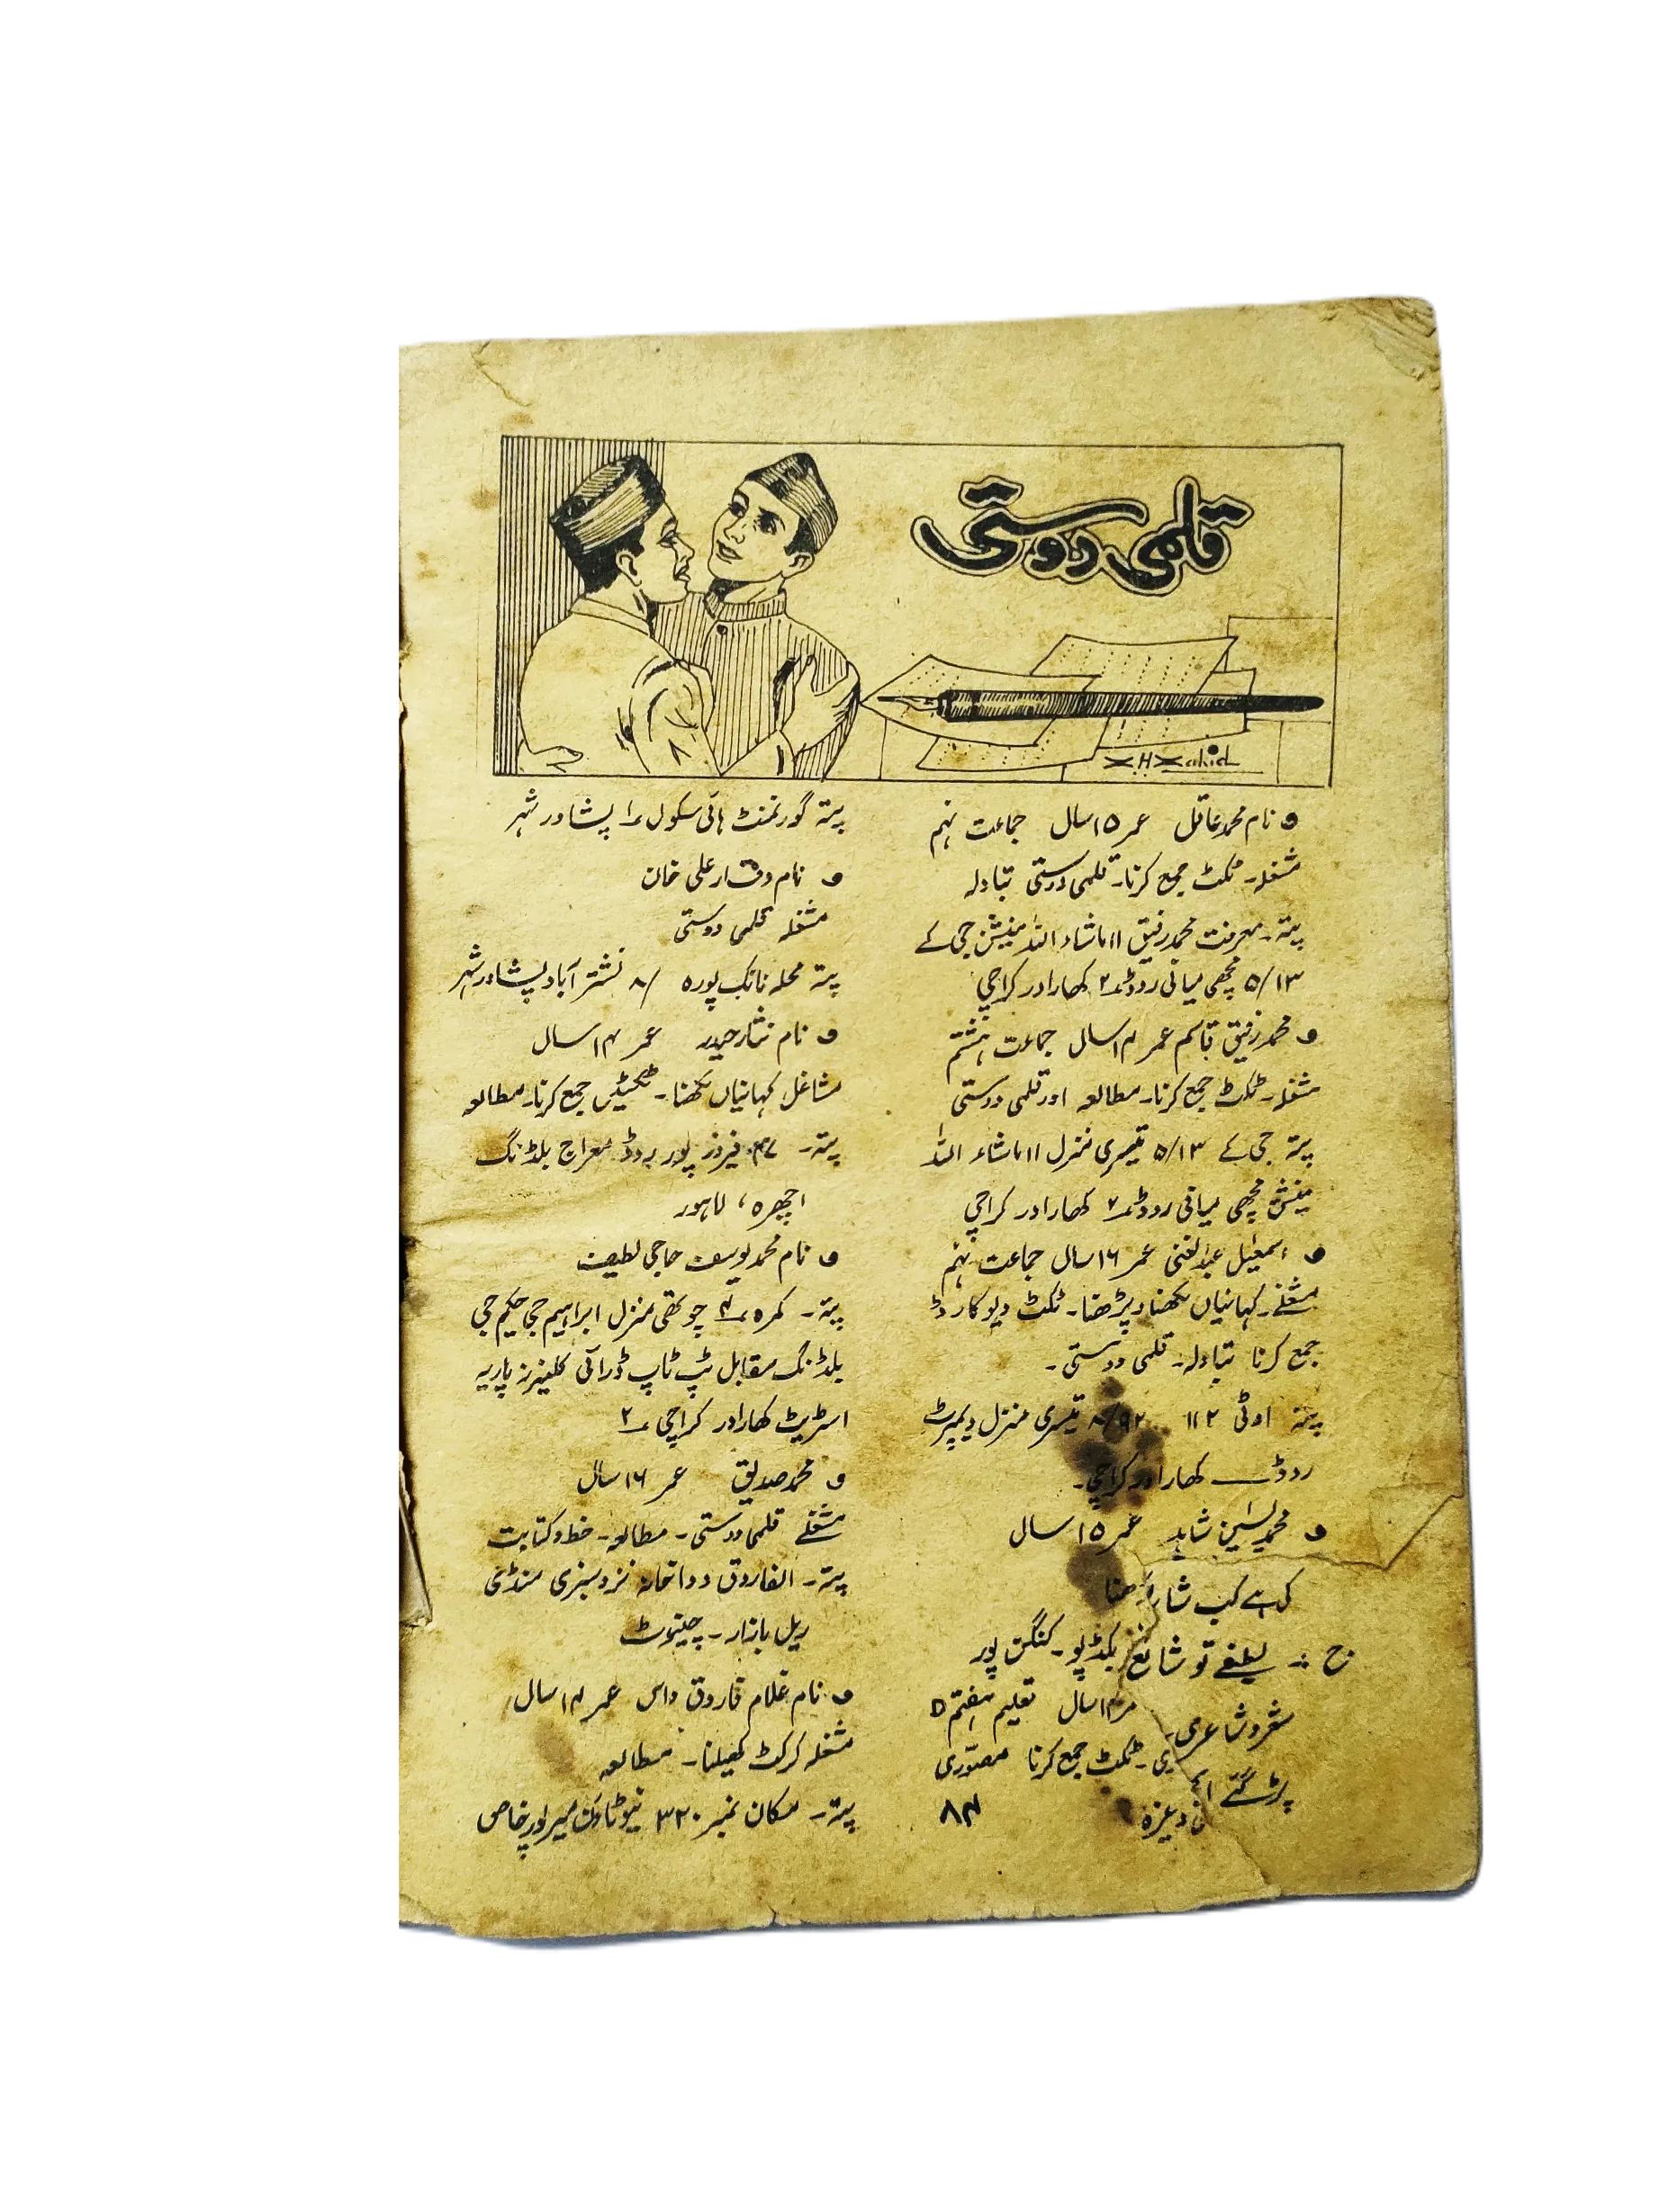 قلمی دوستی
XHXahid
• نام محمد عاقل عمر ۱۵ سال جماعت نہم
مشغلہ۔ ٹکٹ جمع کرنا۔ قلمی دوستی تبادلہ
پتہ۔ معرفت محمد رفیق II ماشاء اللہ مینشن جی کے
۵/۱۳ مچھی میانی روڈ ۲؎ کھارادر کراچی
• محمد رفیق قاسم عمر ۱۴ سال جماعت ہشتم
مشغلہ۔ ٹکٹ جمع کرنا۔ مطالعہ اور قلمی دوستی
پتہ جی کے ۵/۱۳ تیسری منزل II ماشاء اللہ
مینشن مچھی میانی روڈ ۲؎ کھارادر کراچی
• اسمٰعیل عبدالغنی عمر ۱۶ سال جماعت نہم
مشغلے۔ کہانیاں لکھنا و پڑھنا۔ ٹکٹ ویو کارڈ
جمع کرنا تبادلہ۔ قلمی دوستی۔
پتہ او ٹی ۱۱۲ ۸/۹۲ تیسری منزل
روڈ کھارادر کراچی۔
• محمد یٰسین شاہد عمر ۱۵ سال
بکڈپو۔ کنگن پور
ج :۔ لطیفے تو شائع
۱۳ سال تعلیم ہفتم ۵
شعر و شاعری
ٹکٹ جمع کرنا مصوّری
پڑ گئے
۸۴
پتہ گورنمنٹ ہائی سکول ۱؎ پشاور شہر
• نام وقار علی خان
مشغلہ قلمی دوستی
پتہ محلہ نانک پورہ ۸/ نشتر آباد پشاور شہر
• نام نثار حیدر عمر ۱۴ سال
مشاغل کہانیاں لکھنا۔ ٹکٹیں جمع کرنا۔ مطالعہ
پتہ۔ فیروز پور روڈ معراج بلڈنگ
اچھرہ، لاہور
• نام محمد یوسف حاجی لطیف
پتہ۔ کمرہ ۴؎ چوتھی منزل ابراہیم جی حکیم جی
بلڈنگ مقابل ٹپ ٹاپ ڈرائی کلینرز پاریہ
اسٹریٹ کھارادر کراچی ۲؎
• محمد صدیق عمر ۱۶ سال
مشغلے قلمی دوستی۔ مطالعہ۔ خط و کتابت
پتہ۔ الفاروق دواخانہ نزد سبزی منڈی
ریل بازار۔ چنیوٹ
• نام غلام فاروق داس عمر ۱۴ سال
مشغلہ کرکٹ کھیلنا۔ مطالعہ
پتہ۔ مکان نمبر ۳۲۰ نیو ٹاؤن میرپور خاص